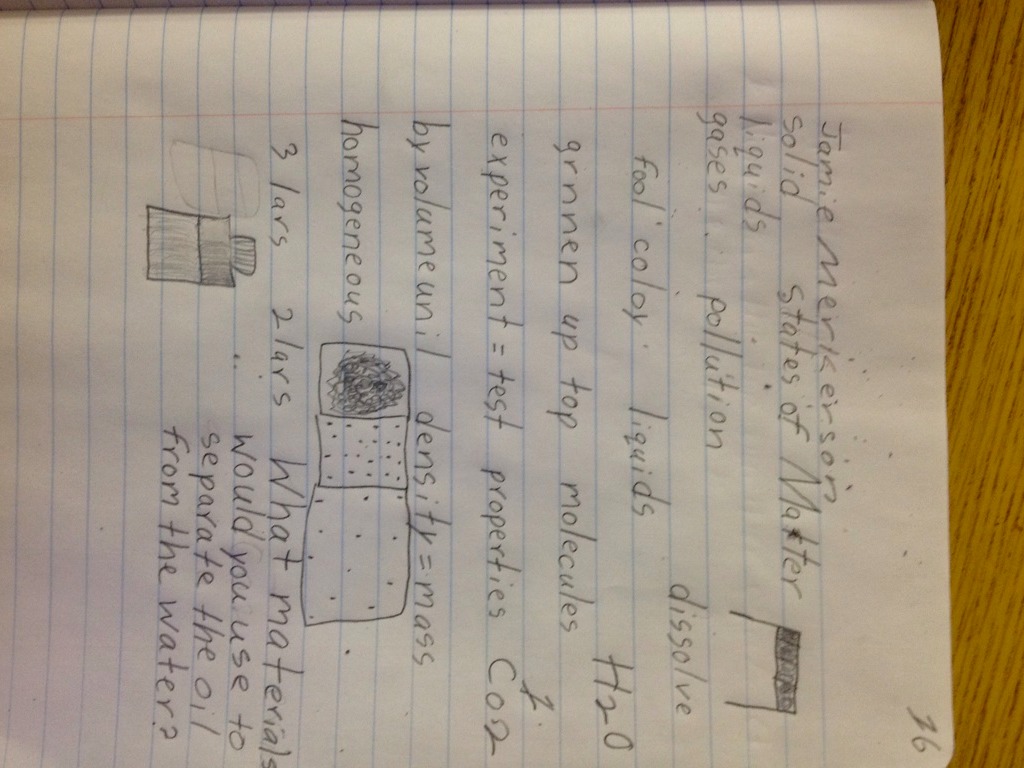 16
Jamie Merikerson
solid states of Matter
liquids
gases pollution
dissolve
fool color liquids
H20
grnnen up top molecules
1.
experiment = test properties Co2
by volume unil density = mass
homogeneous
3 lars 2 lars What materials
would you use to
separate the oil
from the water?